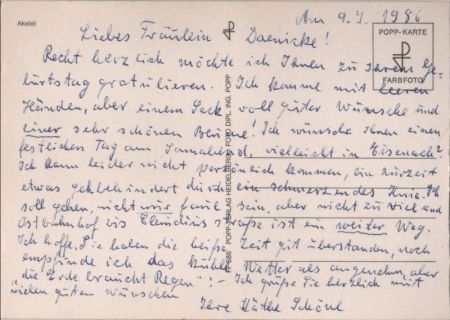 Akelei
Am 9.7. 1986
Liebes Fräulein Daenicke!
POPP-KARTE
FARBFOTO
Recht herzlich möchte ich Ihnen zu Ihrem Ge-
burtstag gratulieren. Ich komme mit leeren
Händen, aber einem Sack voll guter Wünsche und
einer sehr schönen Blume! Ich wünsche Ihnen einen
festlichen Tag am Sonnabend, vielleicht in Eisenach?
Ich kann leider nicht persönlich kommen, bin zurzeit
etwas gehbehindert durch ein schmerzendes Knie. Ich
soll gehen, nicht nur faul sein, aber nicht zu viel und
Ostbahnhof bis Claudiusstraße ist ein weiter Weg.
Ich hoffe, Sie haben die heiße Zeit gut überstanden, noch
empfinde ich das kühle Wetter als angenehm, aber
"die Erde braucht Regen"! - Ich grüße Sie herzlich mit
vielen guten Wünschen
Ihre Käthe Schöne
POPP-VERLAG HEIDELBERG FOTO DIPL. ING. POPP